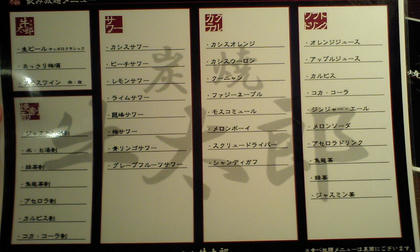 飲み放題メニュー
・生ビール
・あっさり梅酒
焼酎
・水・お湯割
・緑茶割
・烏龍茶割
・アセロラ割
・カルピス割
・コカ・コーラ割
サワー
・カシスサワー
・ピーチサワー
・レモンサワー
・ライムサワー
・巨峰サワー
・梅サワー
・青リンゴサワー
・グレープフルーツサワー
カクテル
・カシスオレンジ
・カシスウーロン
・クーニャン
・ファジーネーブル
・モスコミュール
・メロンボーイ
・スクリュードライバー
・シャンディガフ
ソフトドリンク
・オレンジジュース
・アップルジュース
・カルピス
・コカ・コーラ
・ジンジャーエール
・メロンソーダ
・アセロラドリンク
・烏龍茶
・緑茶
・ジャスミン茶
炭焼
太郎